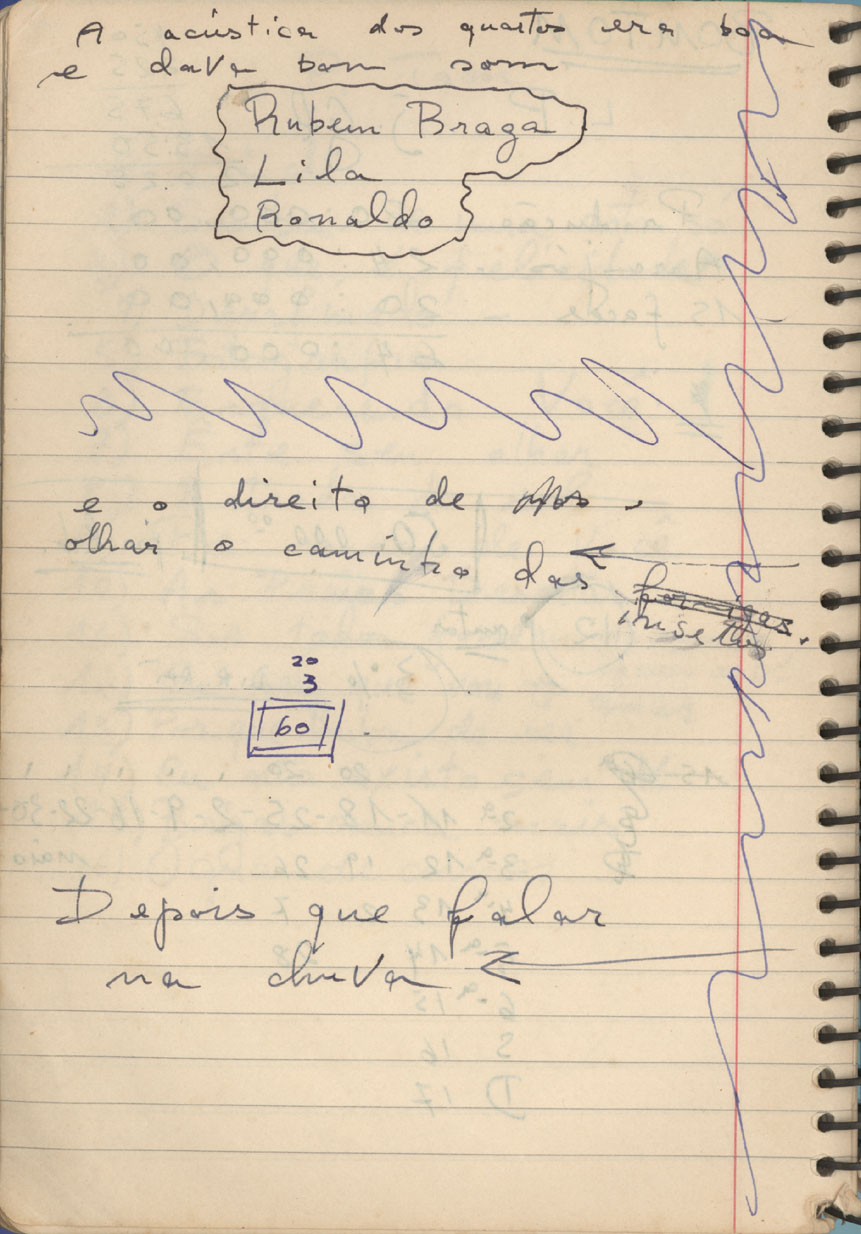 A acústica dos quartos era boa
e dava bom som
Rubem Braga
Lila
Ronaldo
e o direito de
olhar o caminho das formigas.
insettos
20
3
60
Depois que falar
na chuva